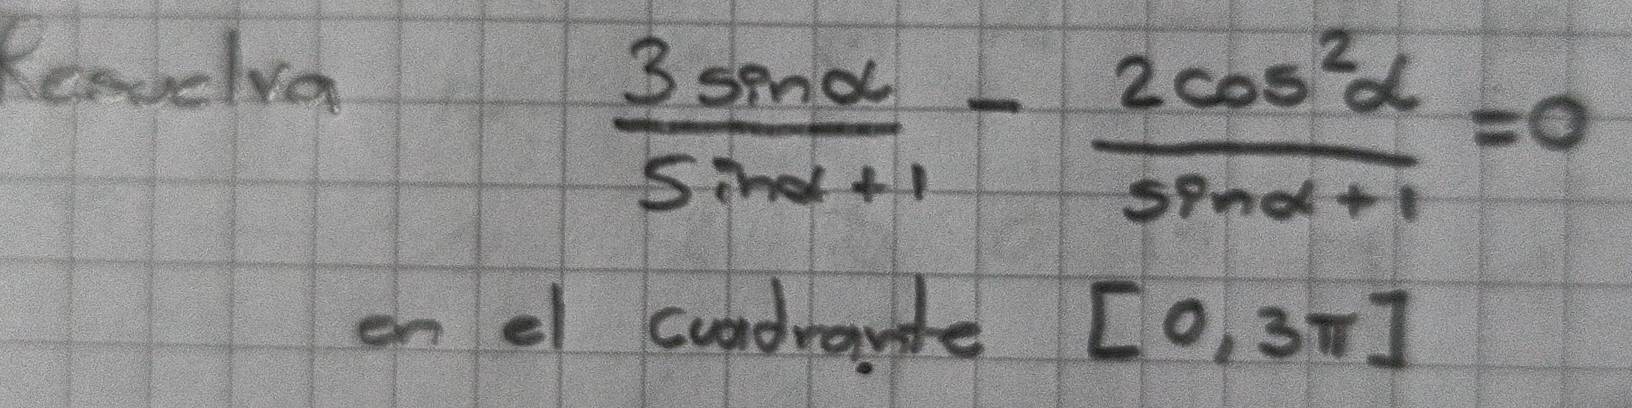 Resuelva 3 sinα / sinα + 1 - 2 cos²α / sinα + 1 = 0
en el cuadrante [0, 3π]